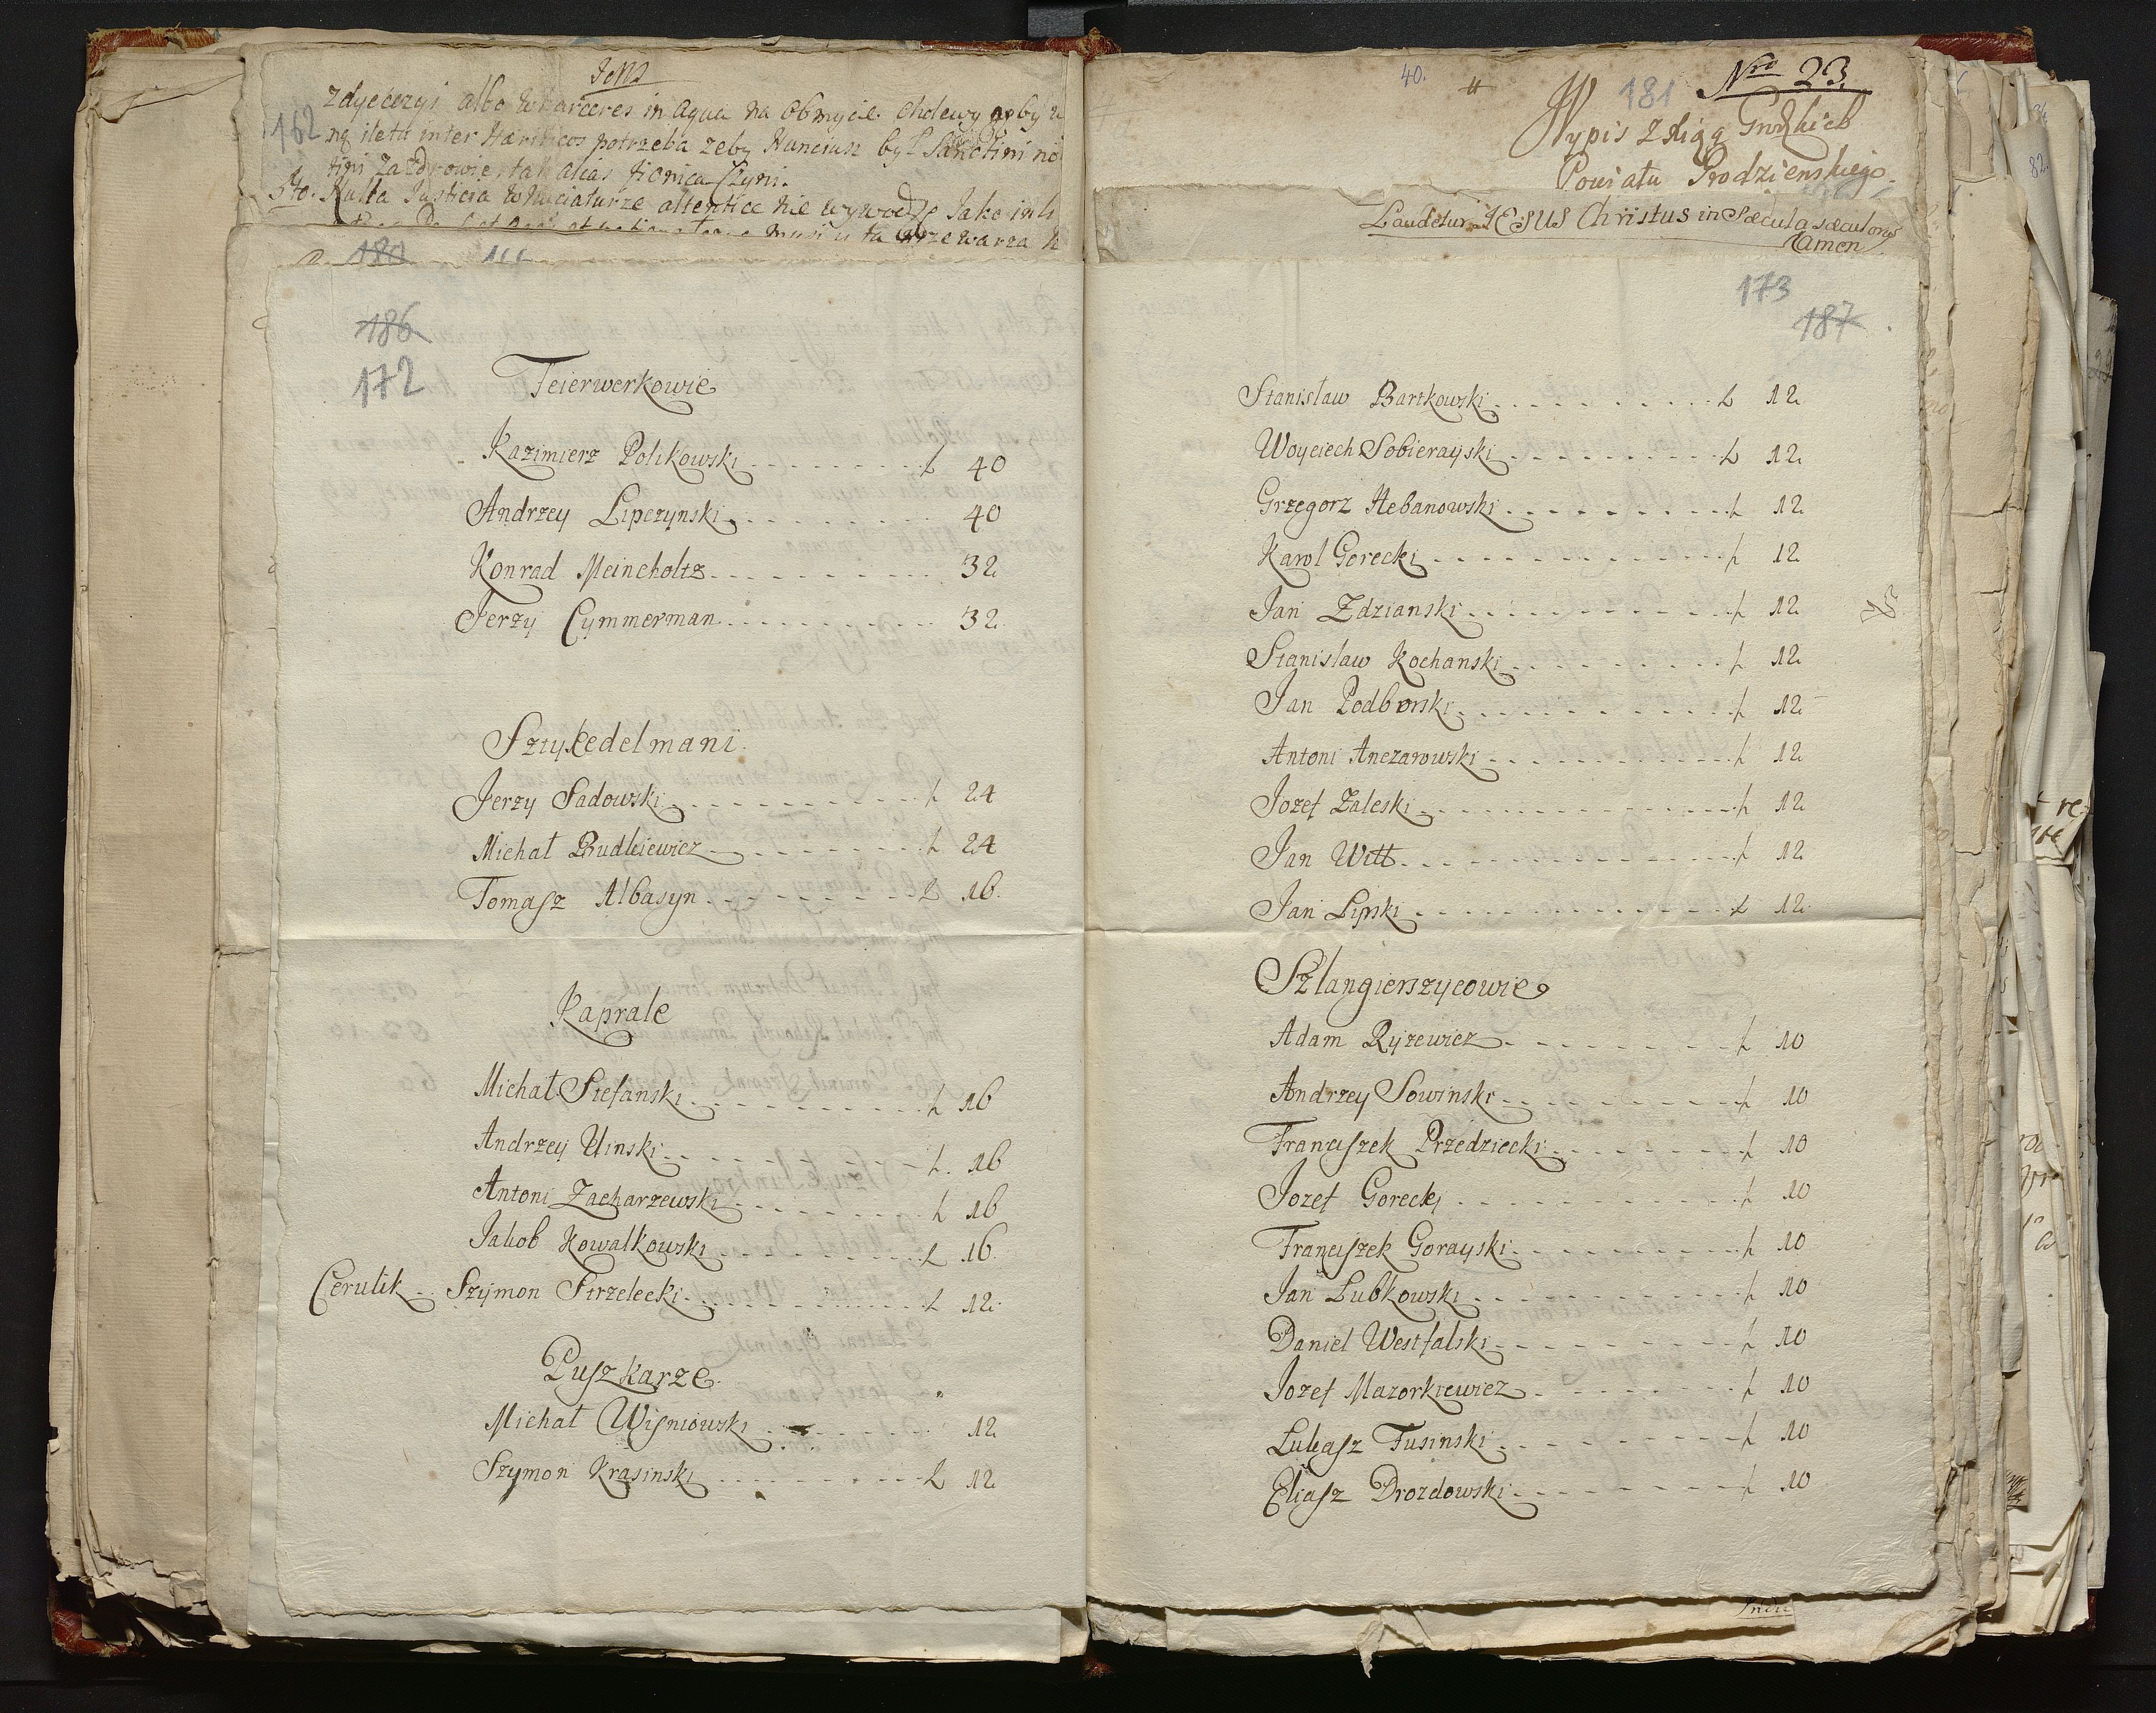 Zdyecezyi albo w karceres in aqua na obmycie cholewy
162
inter Hæreticos potrzeba zeby Nuncius był Sanctini
alias
5to. Nulla Justicia w Nuciaturze attentice nie wywodzę Jako
180
186
172
Feierwerkowie
Kazimierz Polikowski . . . . . . . . ł 40
Andrzey Lipczynski . . . . . . . . 40
Konrad Meincholtz . . . . . . . . 32
Jerzy Cymmerman . . . . . . . . 32
Sztykedelmani.
Jerzy Sadowski . . . . . . . . ł 24
Michał Budkiewicz . . . . . . . . ł 24
Tomasz Albasyn . . . . . . . . ł 16.
Kaprale
Michał Stefanski . . . . . . . . ł 16
Andrzey Uinski . . . . . . . . ł. 16
Antoni Zacharzewski . . . . . . . . ł 16
Jakob Kowalkowski . . . . . . . . ł 16.
Cerulik . . Szymon Strzelecki . . . . . . . . ł 12.
Puszkarze.
Michał Wisniowski . . . . . . . . 12
Szymon Krasinski . . . . . . . . ł 12
40.
181
Nro 23.
Wypis z Xiąg Grodzkich
Powiatu Grodzienskiego.
Laudetur JESUS Christus in Sæcula sæculorū
Amen
173
187
Stanisław Bartkowski . . . . . . . . ł 12
Woyciech Sobierayski . . . . . . . . ł 12
Grzegorz Hebanowski . . . . . . . . ł 12
Karol Gorecki . . . . . . . . ł 12
Jan Zdzianski . . . . . . . . ł 12
Stanisław Kochanski . . . . . . . . ł 12
Jan Podborski . . . . . . . . ł 12
Antoni Anczarowski . . . . . . . . ł 12
Jozef Zaleski . . . . . . . . ł 12
Jan Witt . . . . . . . . ł 12
Jan Lipski . . . . . . . . ł 12
Szlangierszycowie
Adam Ryzewicz . . . . . . . . ł 10
Andrzey Sowinski . . . . . . . . ł 10
Franciszek Przedziecki . . . . . . . . ł 10
Jozef Gorecki . . . . . . . . ł 10
Franciszek Gorayski . . . . . . . . ł 10
Jan Lubkowski . . . . . . . . ł 10
Daniel Westfalski . . . . . . . . ł 10
Jozef Mazorkiewicz . . . . . . . . ł 10
Lukasz Fusinski . . . . . . . . ł 10
Eliasz Drozdowski . . . . . . . . ł 10